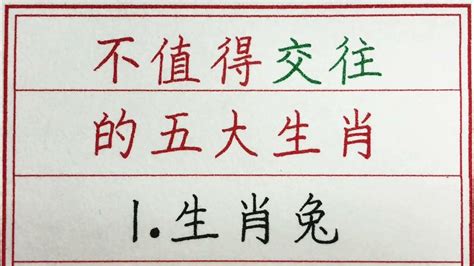 不值得交往
的五大生肖
1.生肖兔